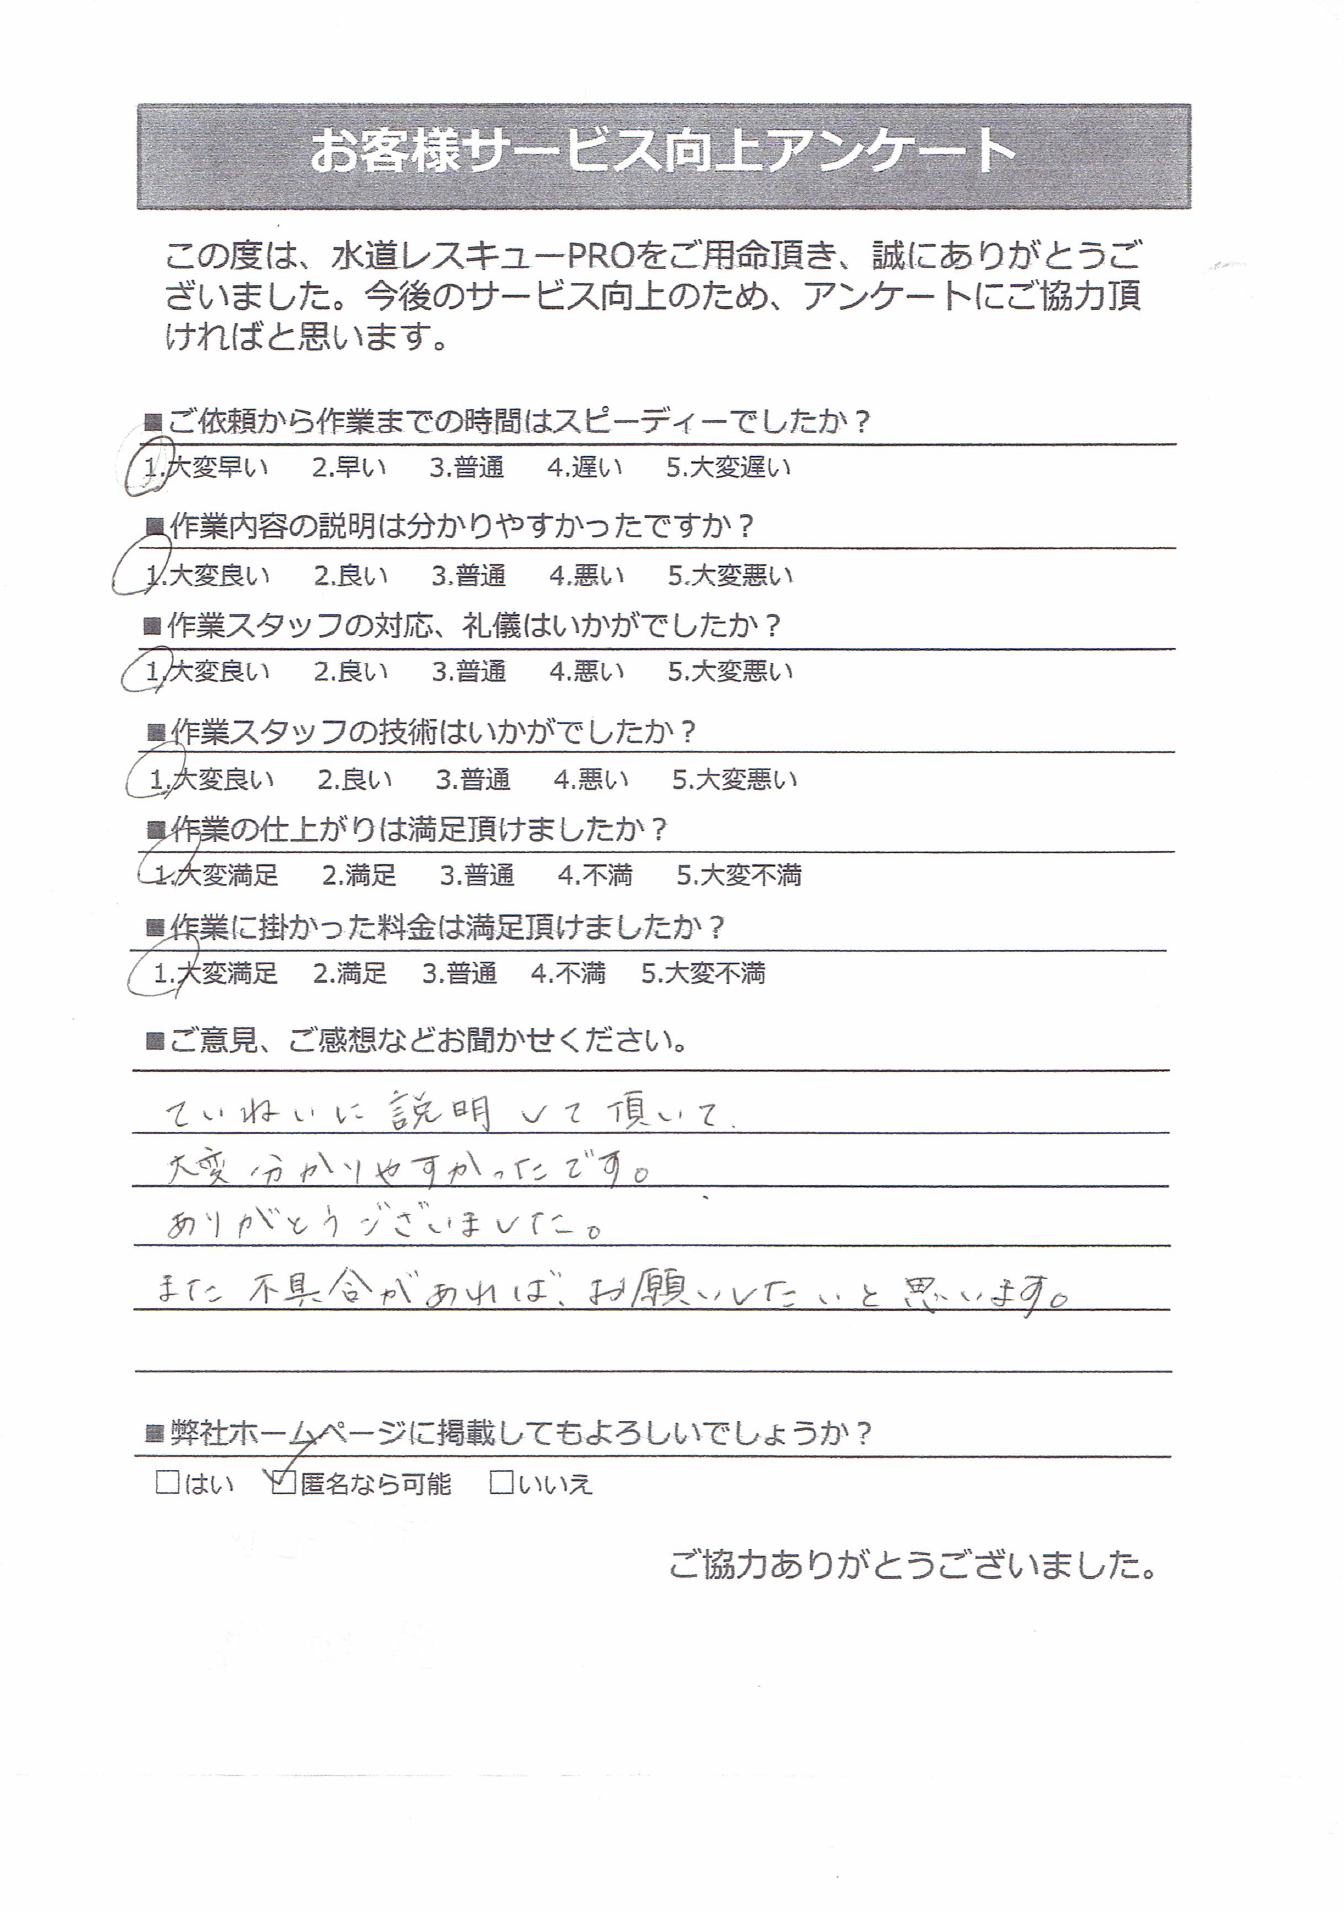 お客様サービス向上アンケート
この度は、水道レスキューPROをご用命頂き、誠にありがとうご
ざいました。今後のサービス向上のため、アンケートにご協力頂
ければと思います。
■ご依頼から作業までの時間はスピーディーでしたか？
1.大変早い 2.早い 3.普通 4.遅い 5.大変遅い
■作業内容の説明は分かりやすかったですか？
1.大変良い 2.良い 3.普通 4.悪い 5.大変悪い
■作業スタッフの対応、礼儀はいかがでしたか？
1.大変良い 2.良い 3.普通 4.悪い 5.大変悪い
■作業スタッフの技術はいかがでしたか？
1.大変良い 2.良い 3.普通 4.悪い 5.大変悪い
■作業の仕上がりは満足頂けましたか？
1.大変満足 2.満足 3.普通 4.不満 5.大変不満
■作業に掛かった料金は満足頂けましたか？
1.大変満足 2.満足 3.普通 4.不満 5.大変不満
■ご意見、ご感想などお聞かせください。
ていねいに説明して頂いて、
大変分かりやすかったです。
ありがとうございました。
また不具合があれば、お願いしたいと思います。
■弊社ホームページに掲載してもよろしいでしょうか？
□はい ☑匿名なら可能 □いいえ
ご協力ありがとうございました。